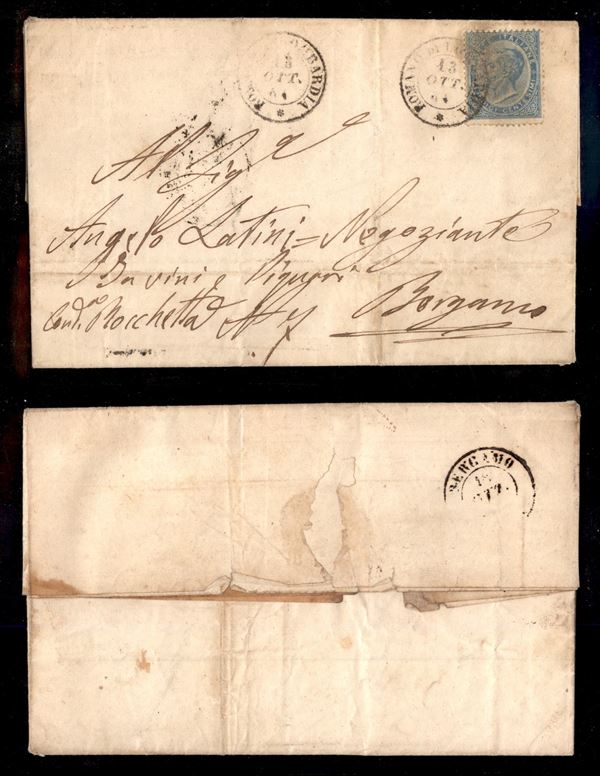 ROMANO DI LOMBARDIA
13
OTT.
64
ROMANO DI LOMBARDIA
13
OTT.
64
Al Sigr
Angelo Latini = Negoziante
Da vini e Liquori
Contda Rocchetta N 7 Bergamo
BERGAMO
OTT.